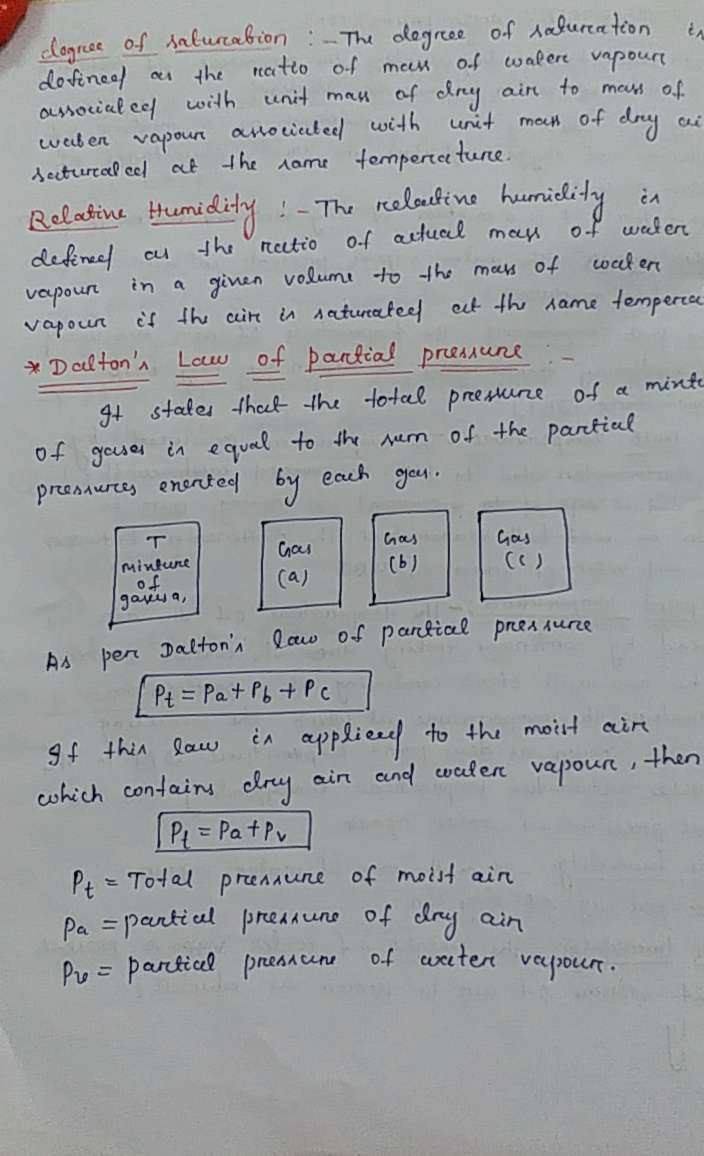 degree of saturation : - The degree of saturation is
defined as the ratio of mass of water vapour
associated with unit mass of dry air to mass of
water vapour associated with unit mass of dry ai
saturated at the same temperature.
Relative Humidity : - The relative humidity is
defined as the ratio of actual mass of water
vapour in a given volume to the mass of water
vapour if the air is saturated at the same tempera
* Dalton's Law of partial pressure : -
It states that the total pressure of a mixtu
of gases is equal to the sum of the partial
pressures exerted by each gas.
T
mixture
of
gases a,
Gas
(a)
Gas
(b)
Gas
(c)
As per Dalton's law of partial pressure
Pt = Pa + Pb + Pc
If this law is applied to the moist air
which contains dry air and water vapour, then
Pt = Pa + Pv
Pt = Total pressure of moist air
Pa = partial pressure of dry air
Pv = partial pressure of water vapour.